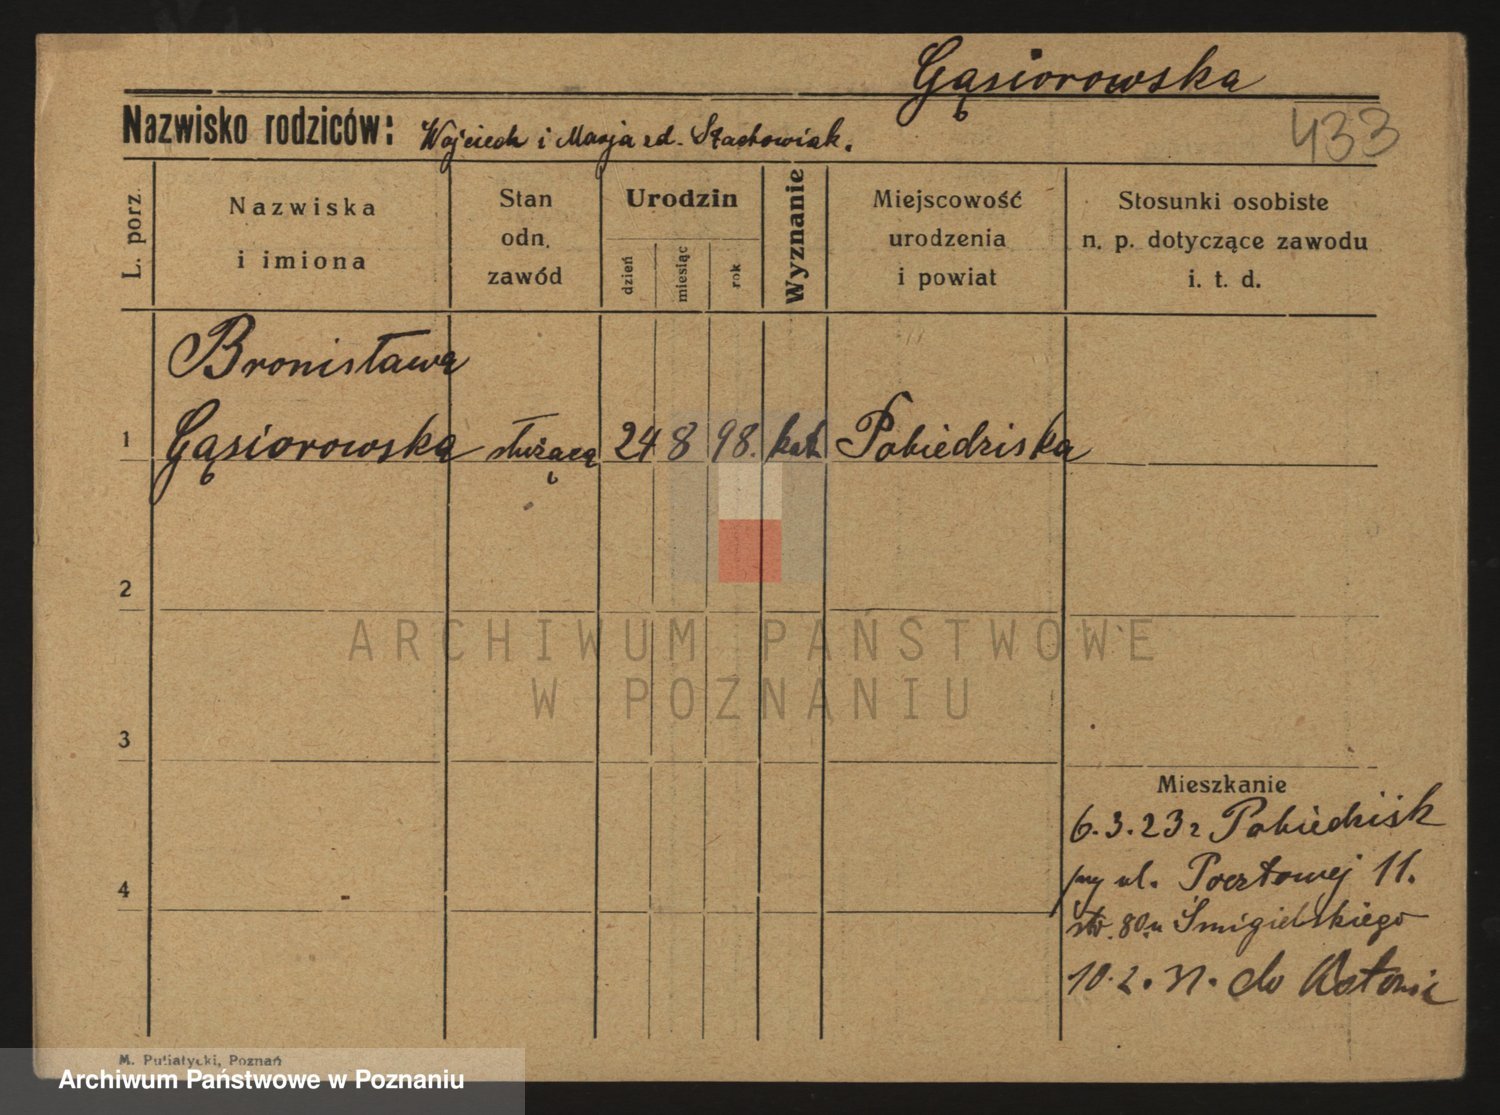 Gąsiorowska
Nazwisko rodziców: Wojciech i Marja zd. Stachowiak.
433
L. porz.
Nazwiska
i imiona
Stan
odn.
zawód
Urodzin
dzień
miesiąc
rok
Wyznanie
Miejscowość
urodzenia
i powiat
Stosunki osobiste
n. p. dotyczące zawodu
i. t. d.
Bronisława
1 Gąsiorowska służąca 24 8 98. kat Pobiedziska
2
ARCHIWUM PAŃSTWOWE
W POZNANIU
3
Mieszkanie
6.3.23 z Pobiedzisk
przy ul. Pocztowej 11.
4
80. u Śmigielskiego
10.2.31. do
M. Putiatycki, Poznań
Archiwum Państwowe w Poznaniu